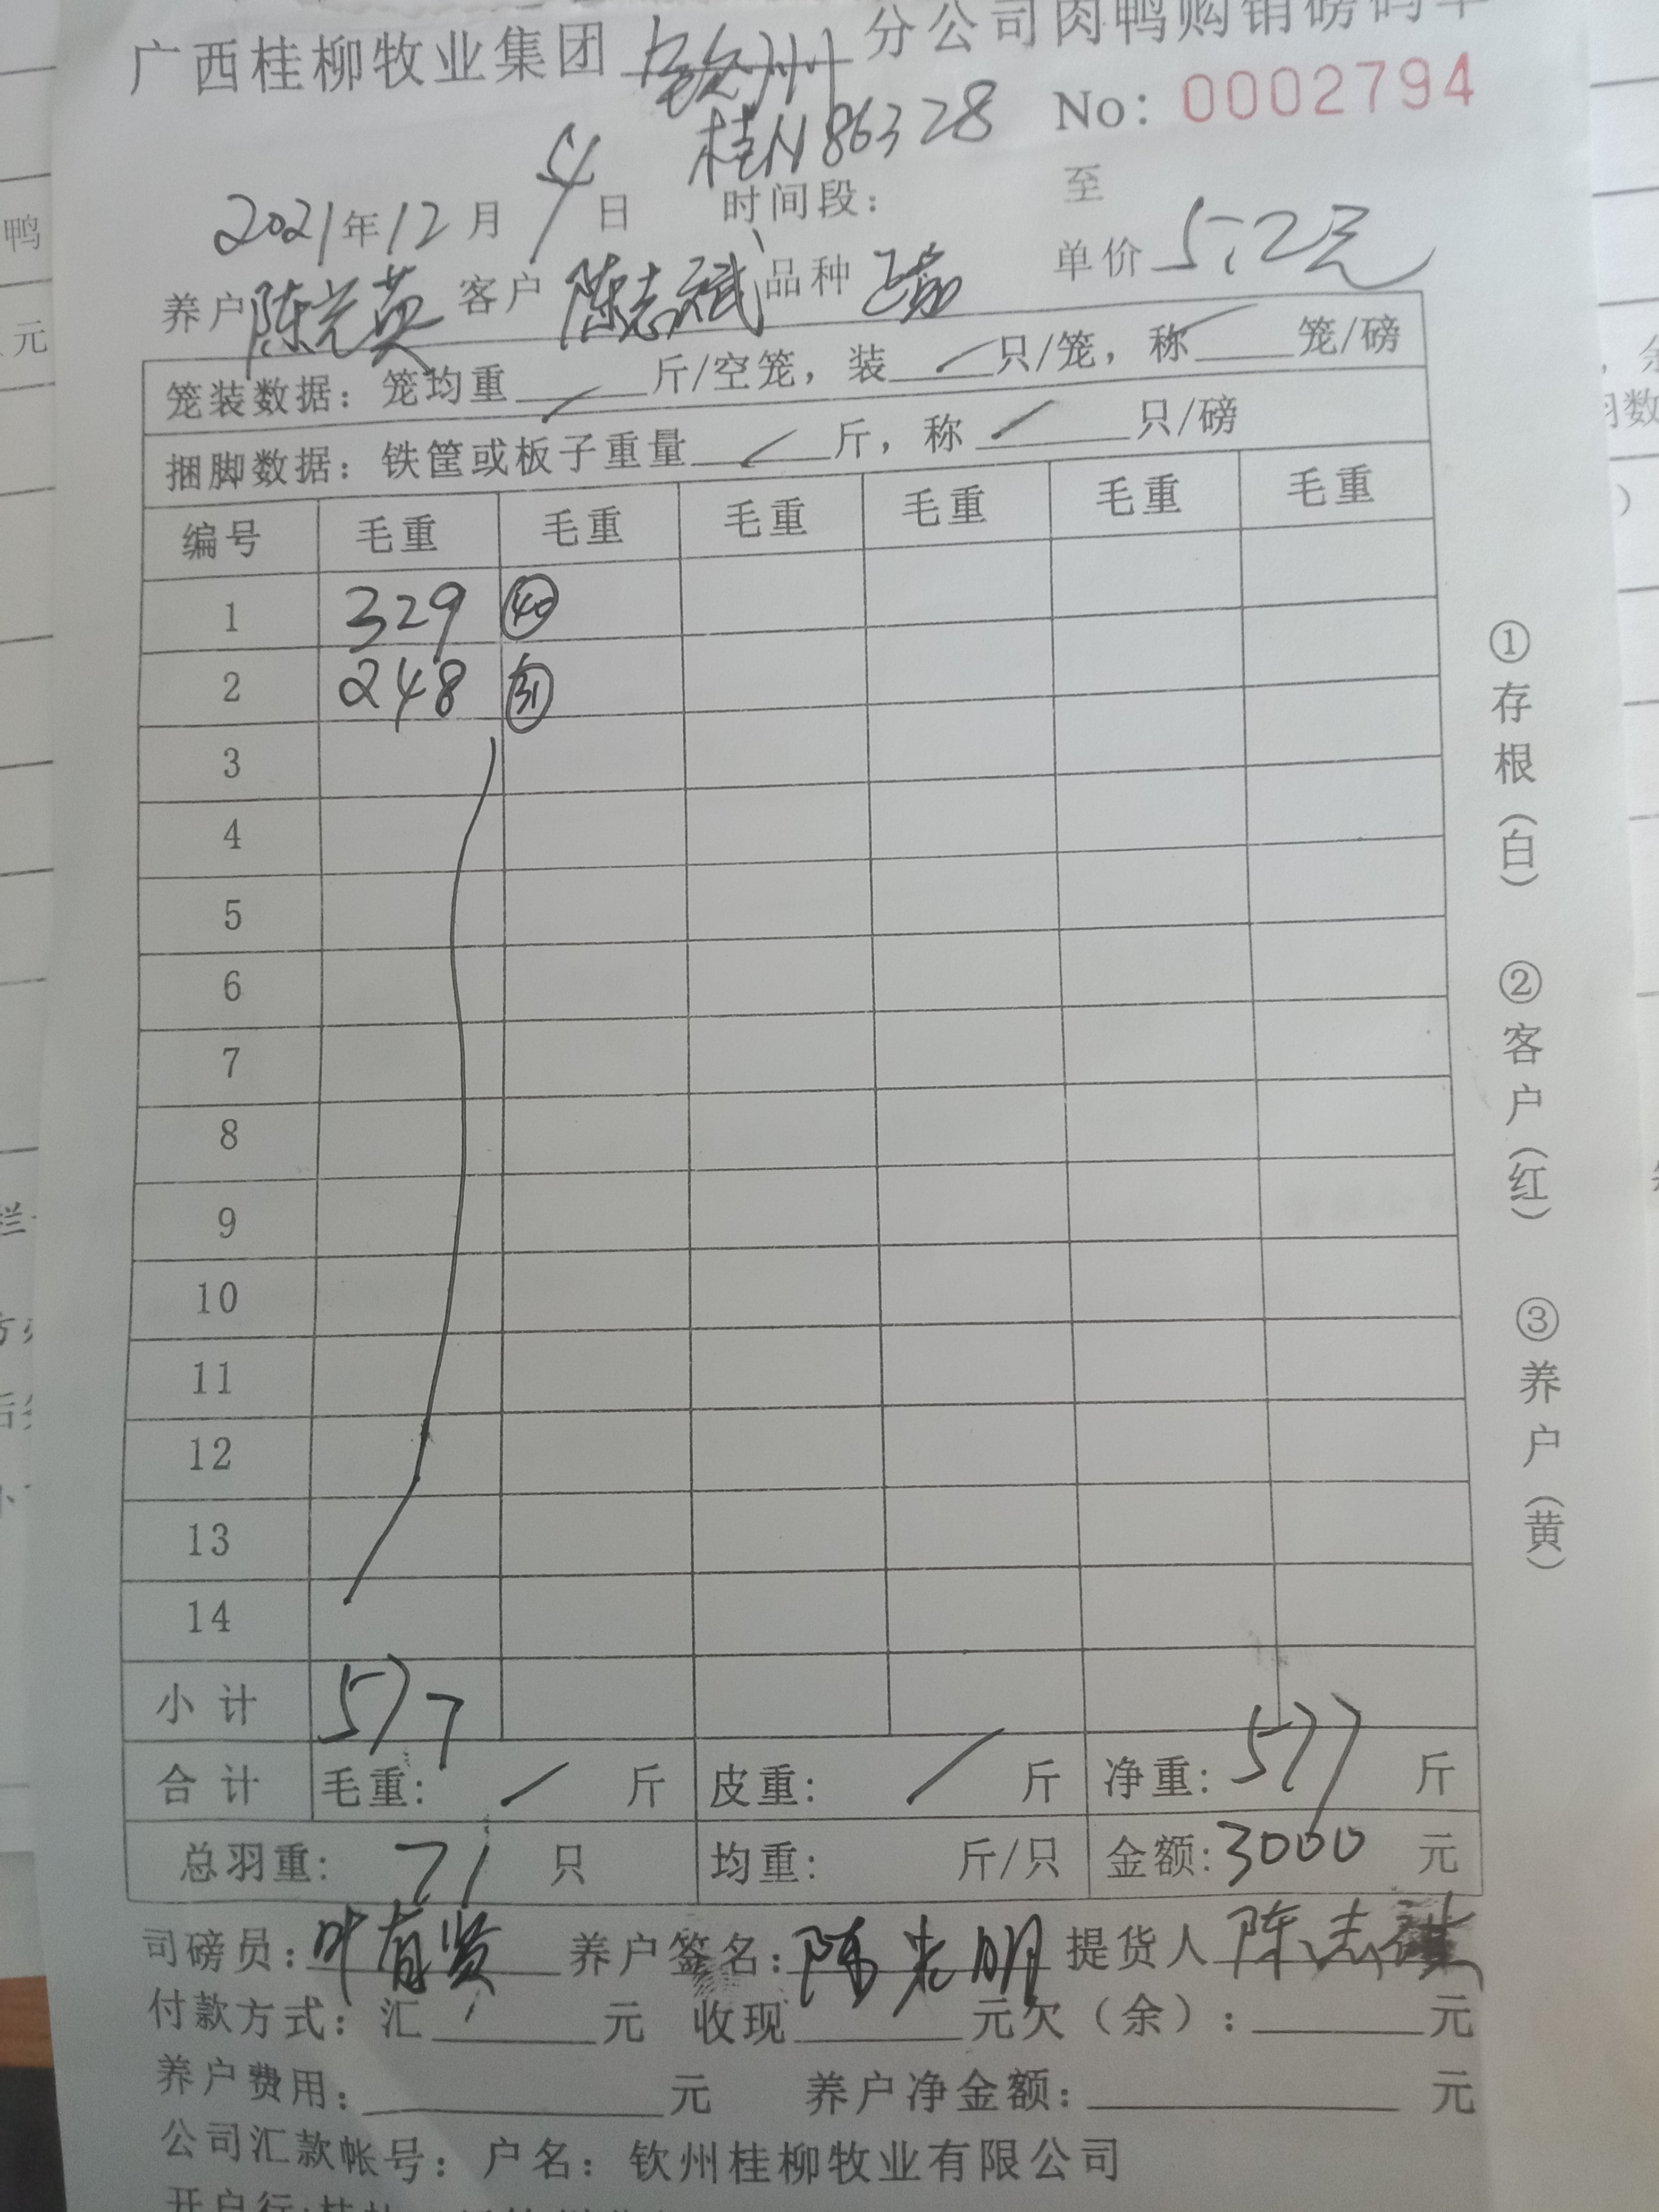 广西桂柳牧业集团 钦州 分公司肉鸭购销磅码单
桂N86328 No: 0002794
2021年12月4日 时间段: 至
养户 陈光英 客户 陈志斌 品种 单价 5.2元
笼装数据: 笼均重 斤/空笼, 装 只/笼, 称 笼/磅
捆脚数据: 铁筐或板子重量 斤, 称 只/磅
编号 毛重 毛重 毛重 毛重 毛重 毛重
1 329 40
2 248 31
3
4
5
6
7
8
9
10
11
12
13
14
小计 577
合计 毛重: / 斤 皮重: / 斤 净重: 577 斤
总羽重: 71 只 均重: 斤/只 金额: 3000 元
司磅员: 叶有贤 养户签名: 陈光明 提货人 陈志
付款方式: 汇 元 收现 元欠(余): 元
养户费用: 元 养户净金额: 元
公司汇款帐号: 户名: 钦州桂柳牧业有限公司
开户行:
①存根(白) ②客户(红) ③养户(黄)
鸭
元